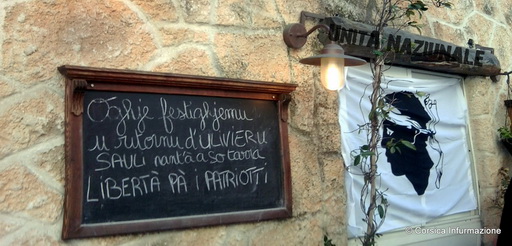 Oghje festighjemu
u ritornu d'ULVIERU
SAULI nant'à a so tarra
LIBERTÀ PÀ I PATRIOTTI
UNITÀ NAZIUNALE
© Corsica Infurmazione